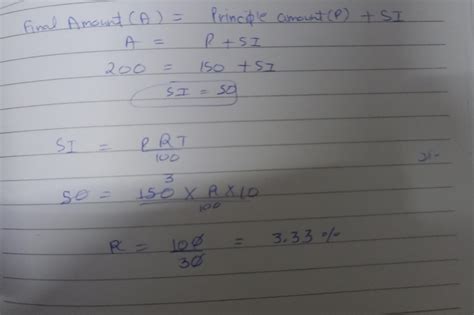 Final Amount (A) = Principle amount (P) + SI
A = P + SI
200 = 150 + SI
SI = 50
SI = PRT/100
3
50 = 150 × R × 10/100
R = 100/30 = 3.33 %